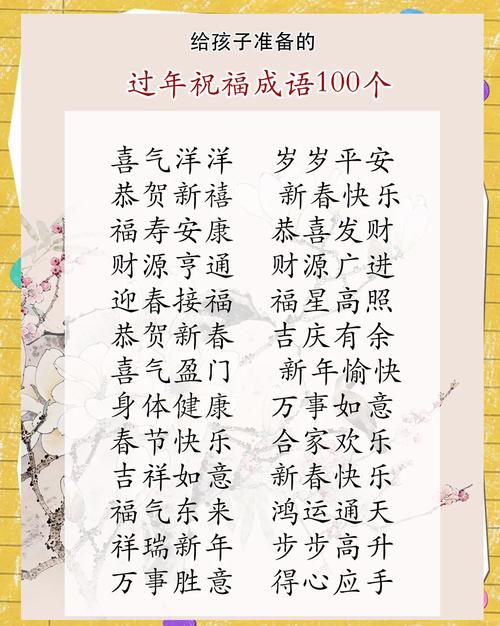 给孩子准备的
过年祝福成语100个
喜气洋洋 岁岁平安
恭贺新禧 新春快乐
福寿安康 恭喜发财
财源亨通 财源广进
迎春接福 福星高照
恭贺新春 吉庆有余
喜气盈门 新年愉快
身体健康 万事如意
春节快乐 合家欢乐
吉祥如意 新春快乐
福气东来 鸿运通天
祥瑞新年 步步高升
万事胜意 得心应手